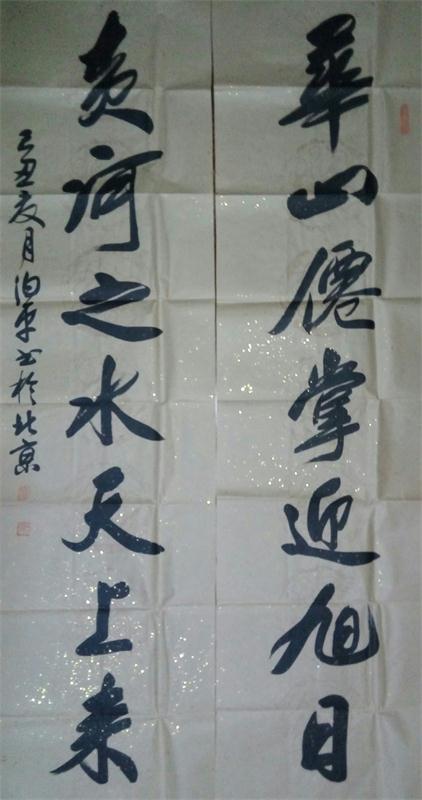 華山僊掌迎旭日
黄河之水天上来
己丑夏月泊平书於北京